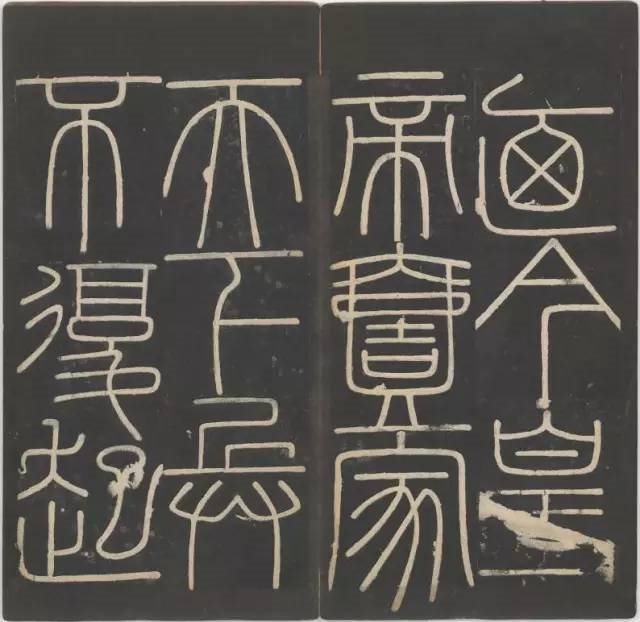 迺今皇
帝壹家
天下兵
不復起